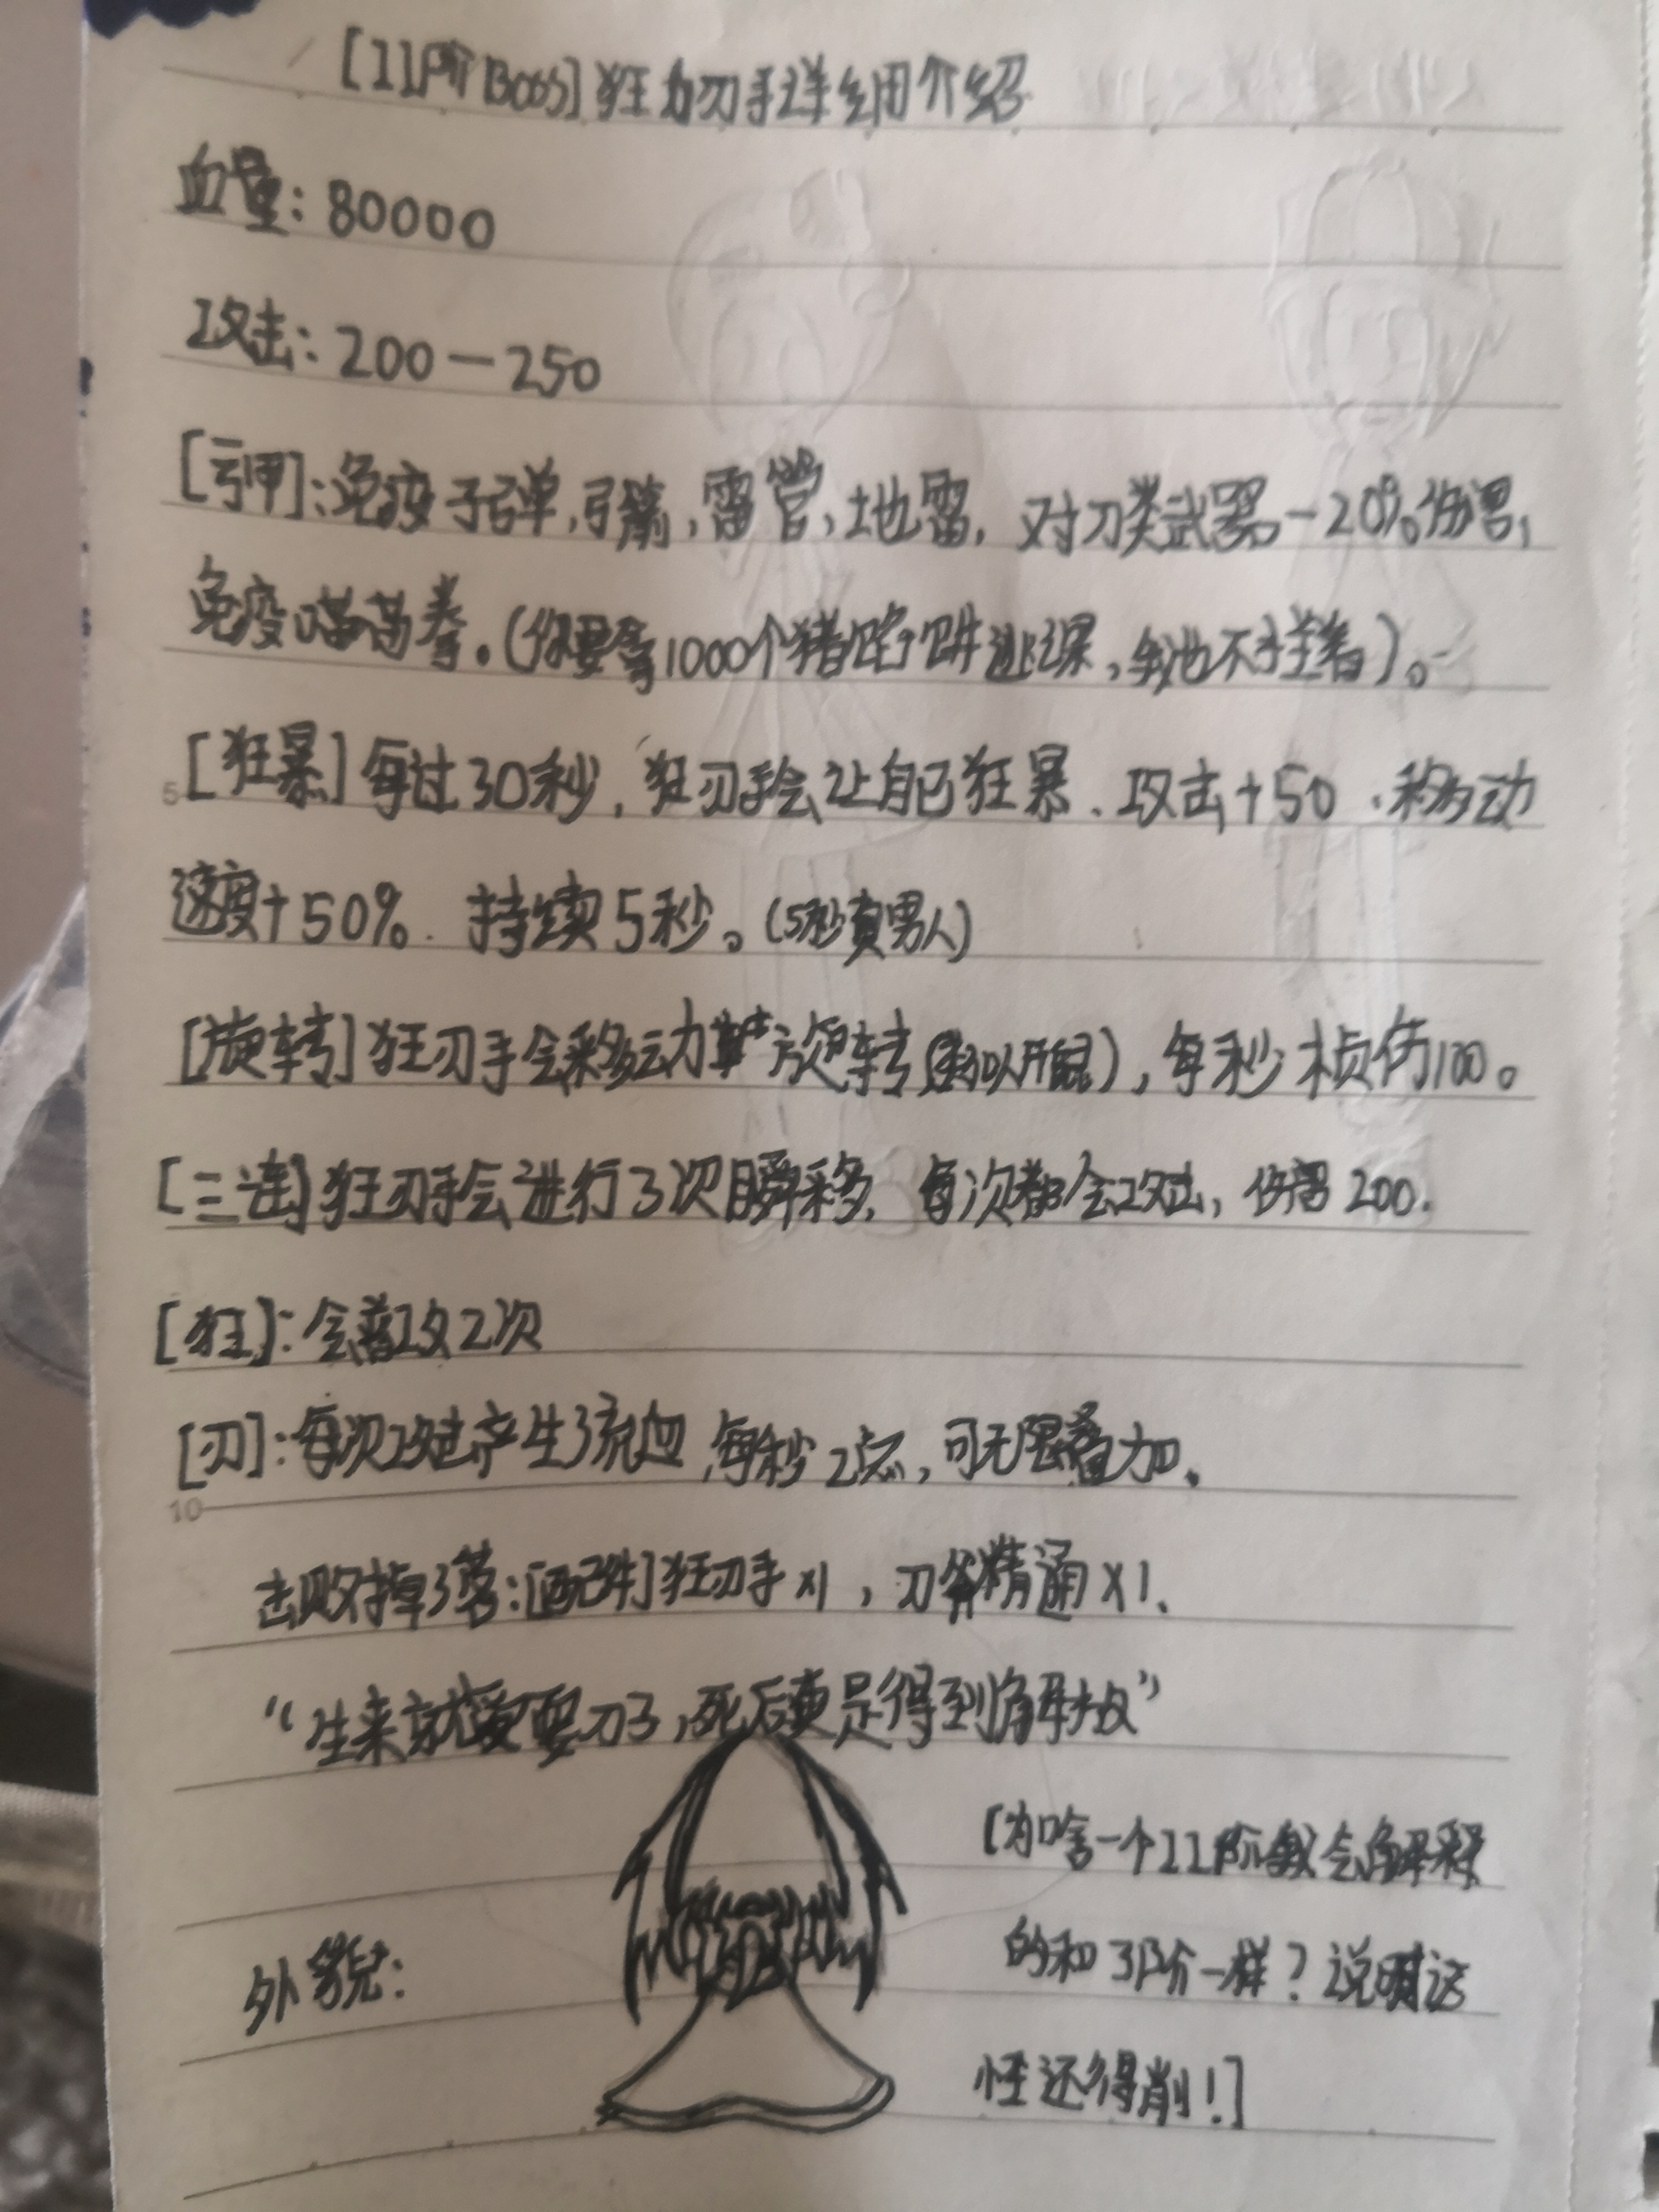 [11阶Boss]狂力刃手详细介绍
血量：80000
攻击：200－250
[弓甲]：免疫子弹，弓箭，雷管，土地雷，对刀类武器－20%伤害，
免疫喵喵拳。（你要拿1000个猪肉馅饼逃课，我也不拦着）。
5
[狂暴]每过30秒，狂刃手会让自己狂暴、攻击+50、移动
速度+50%. 持续5秒。（5秒真男人）
[旋转]狂刃手会移动旋转，每秒损伤100。
[三连]狂刃手会进行3次瞬移，每次都会攻击，伤害200.
[狂]：会普攻2次
[刃]：每次攻击产生流血，每秒2点，可无限叠加。
10
击败掉落：[配件]狂刃手x1，刀斧精通x1、
“生来就爱耍刀了，死后更是得到解放”
[为啥一个11阶我会解释
的和3阶一样？说明这
怪还得削！]
外貌：